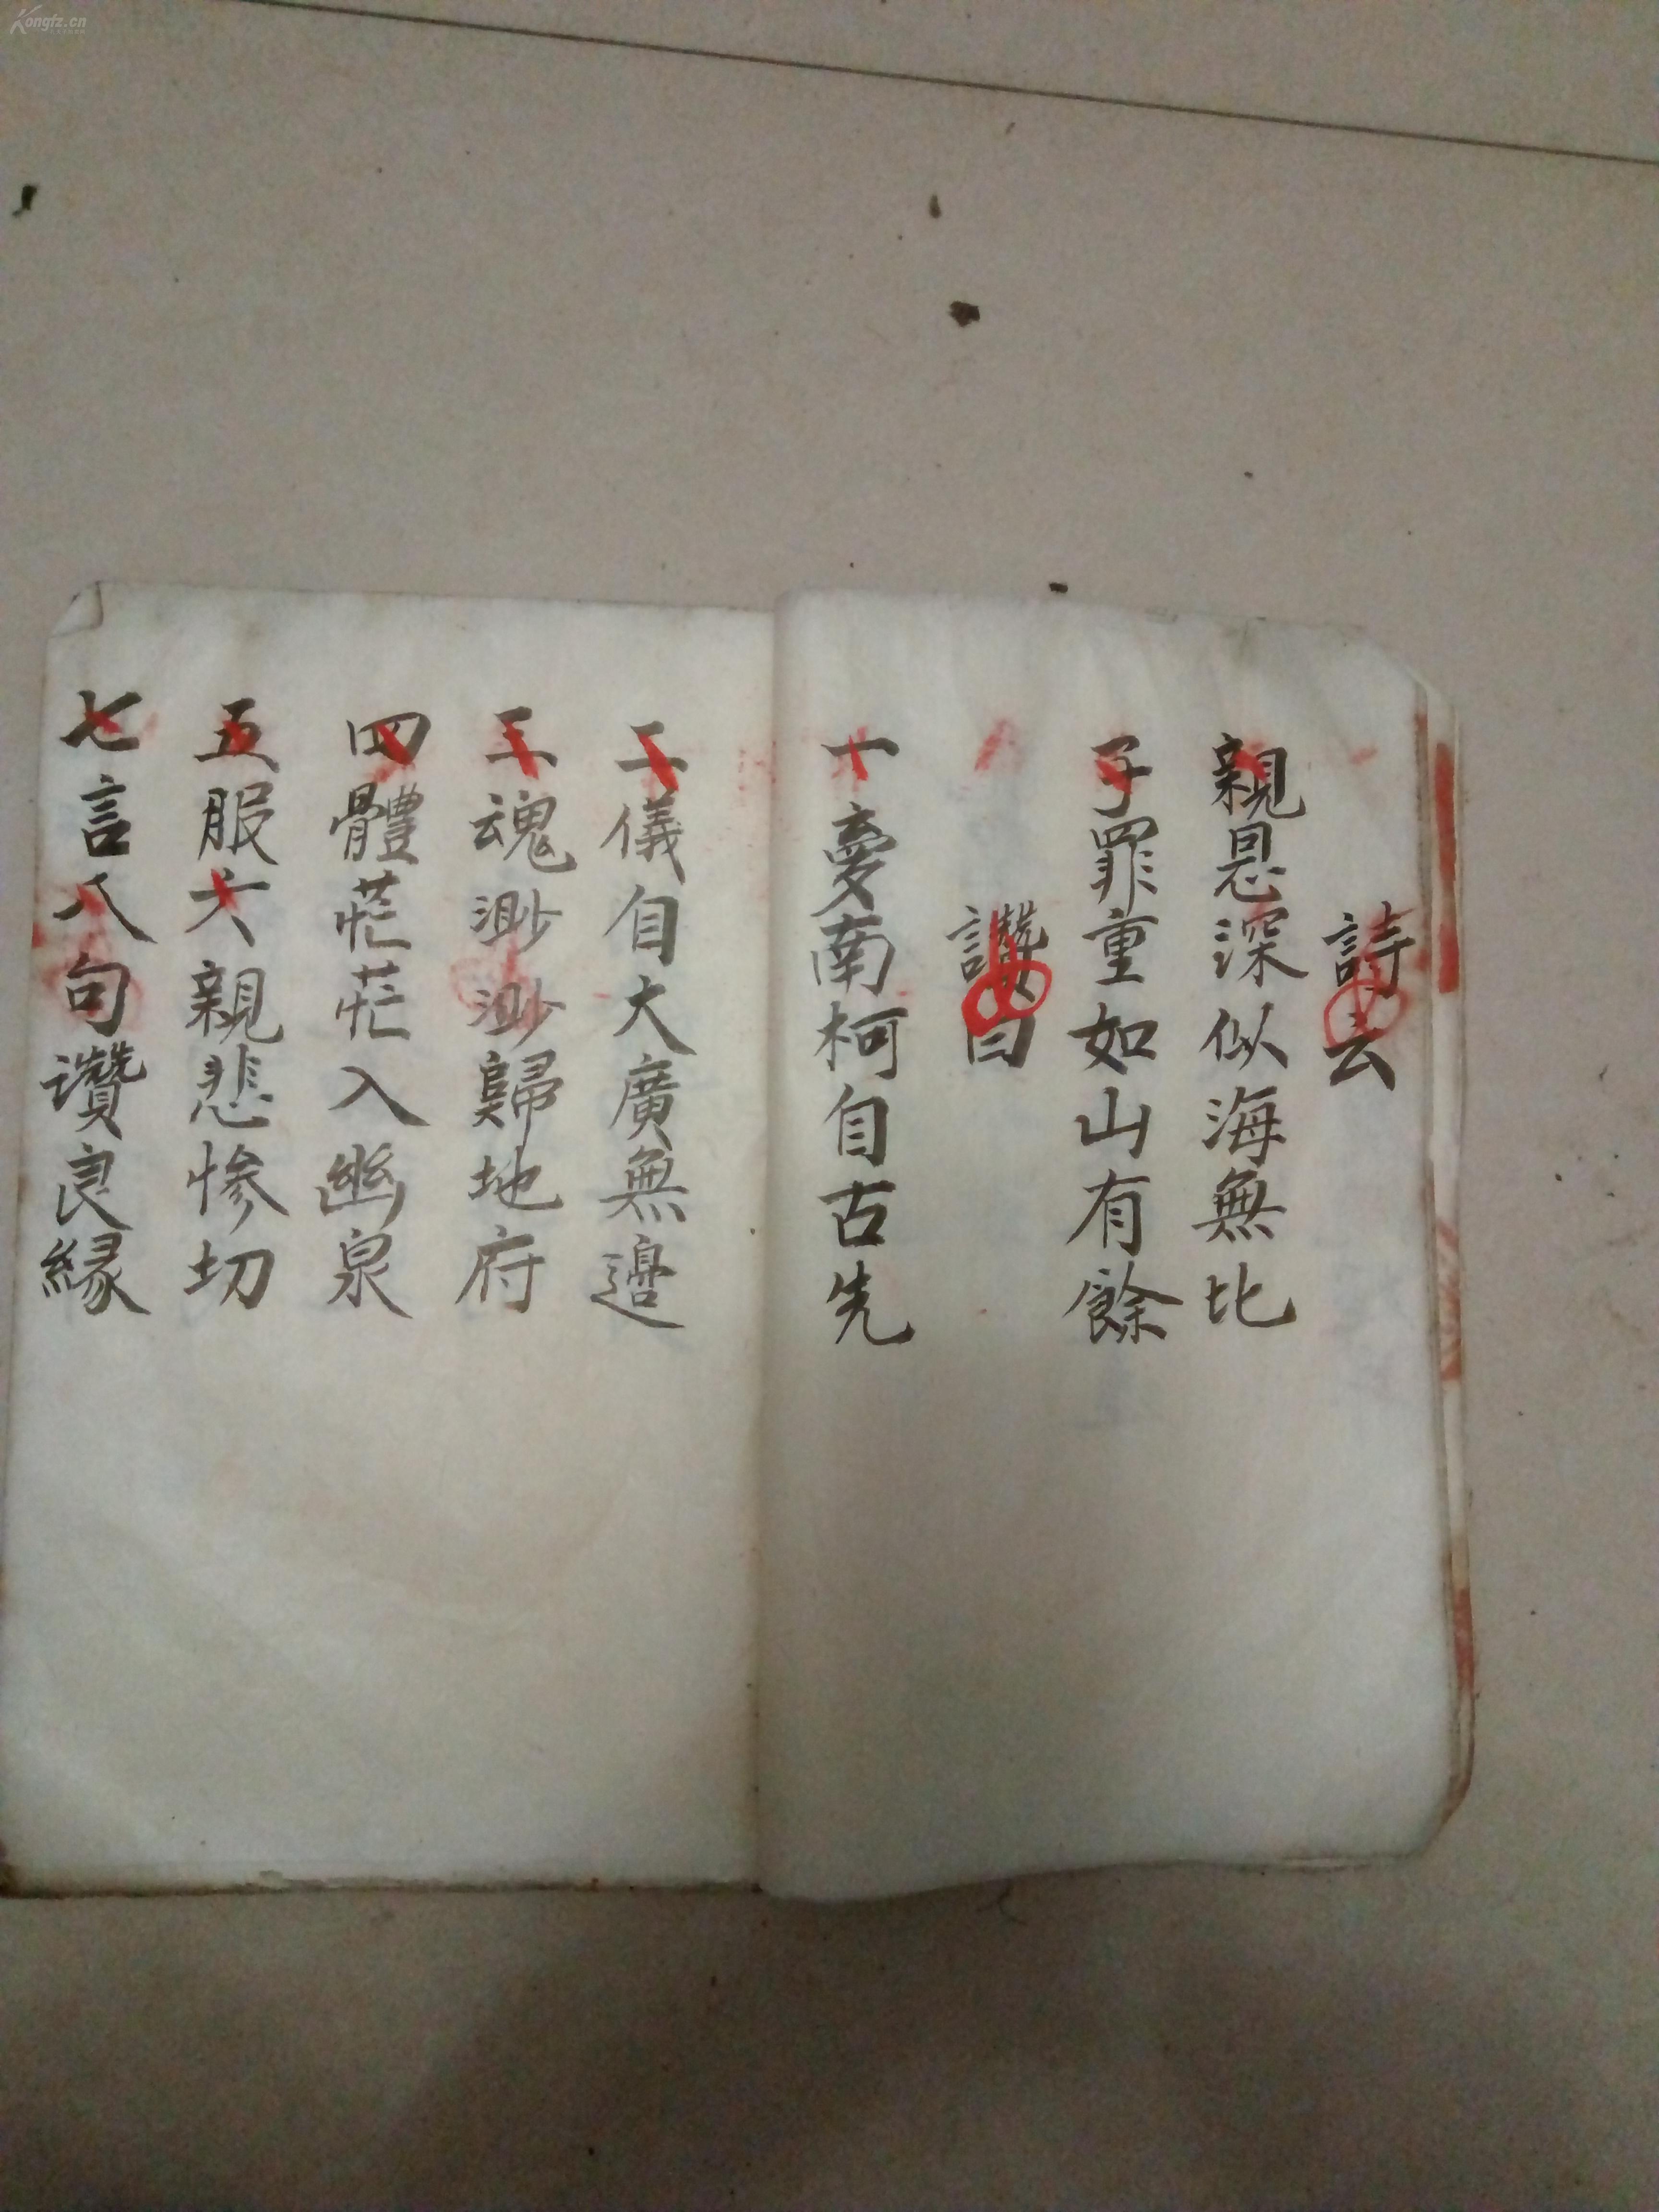 詩云
親恩深似海無比
子罪重如山有餘
讚曰
一夢南柯自古先
二儀自大廣無邉
三魂渺渺歸地府
四體茫茫入幽泉
五服六親悲惨切
七言八句讚良縁
Kongfz.cn